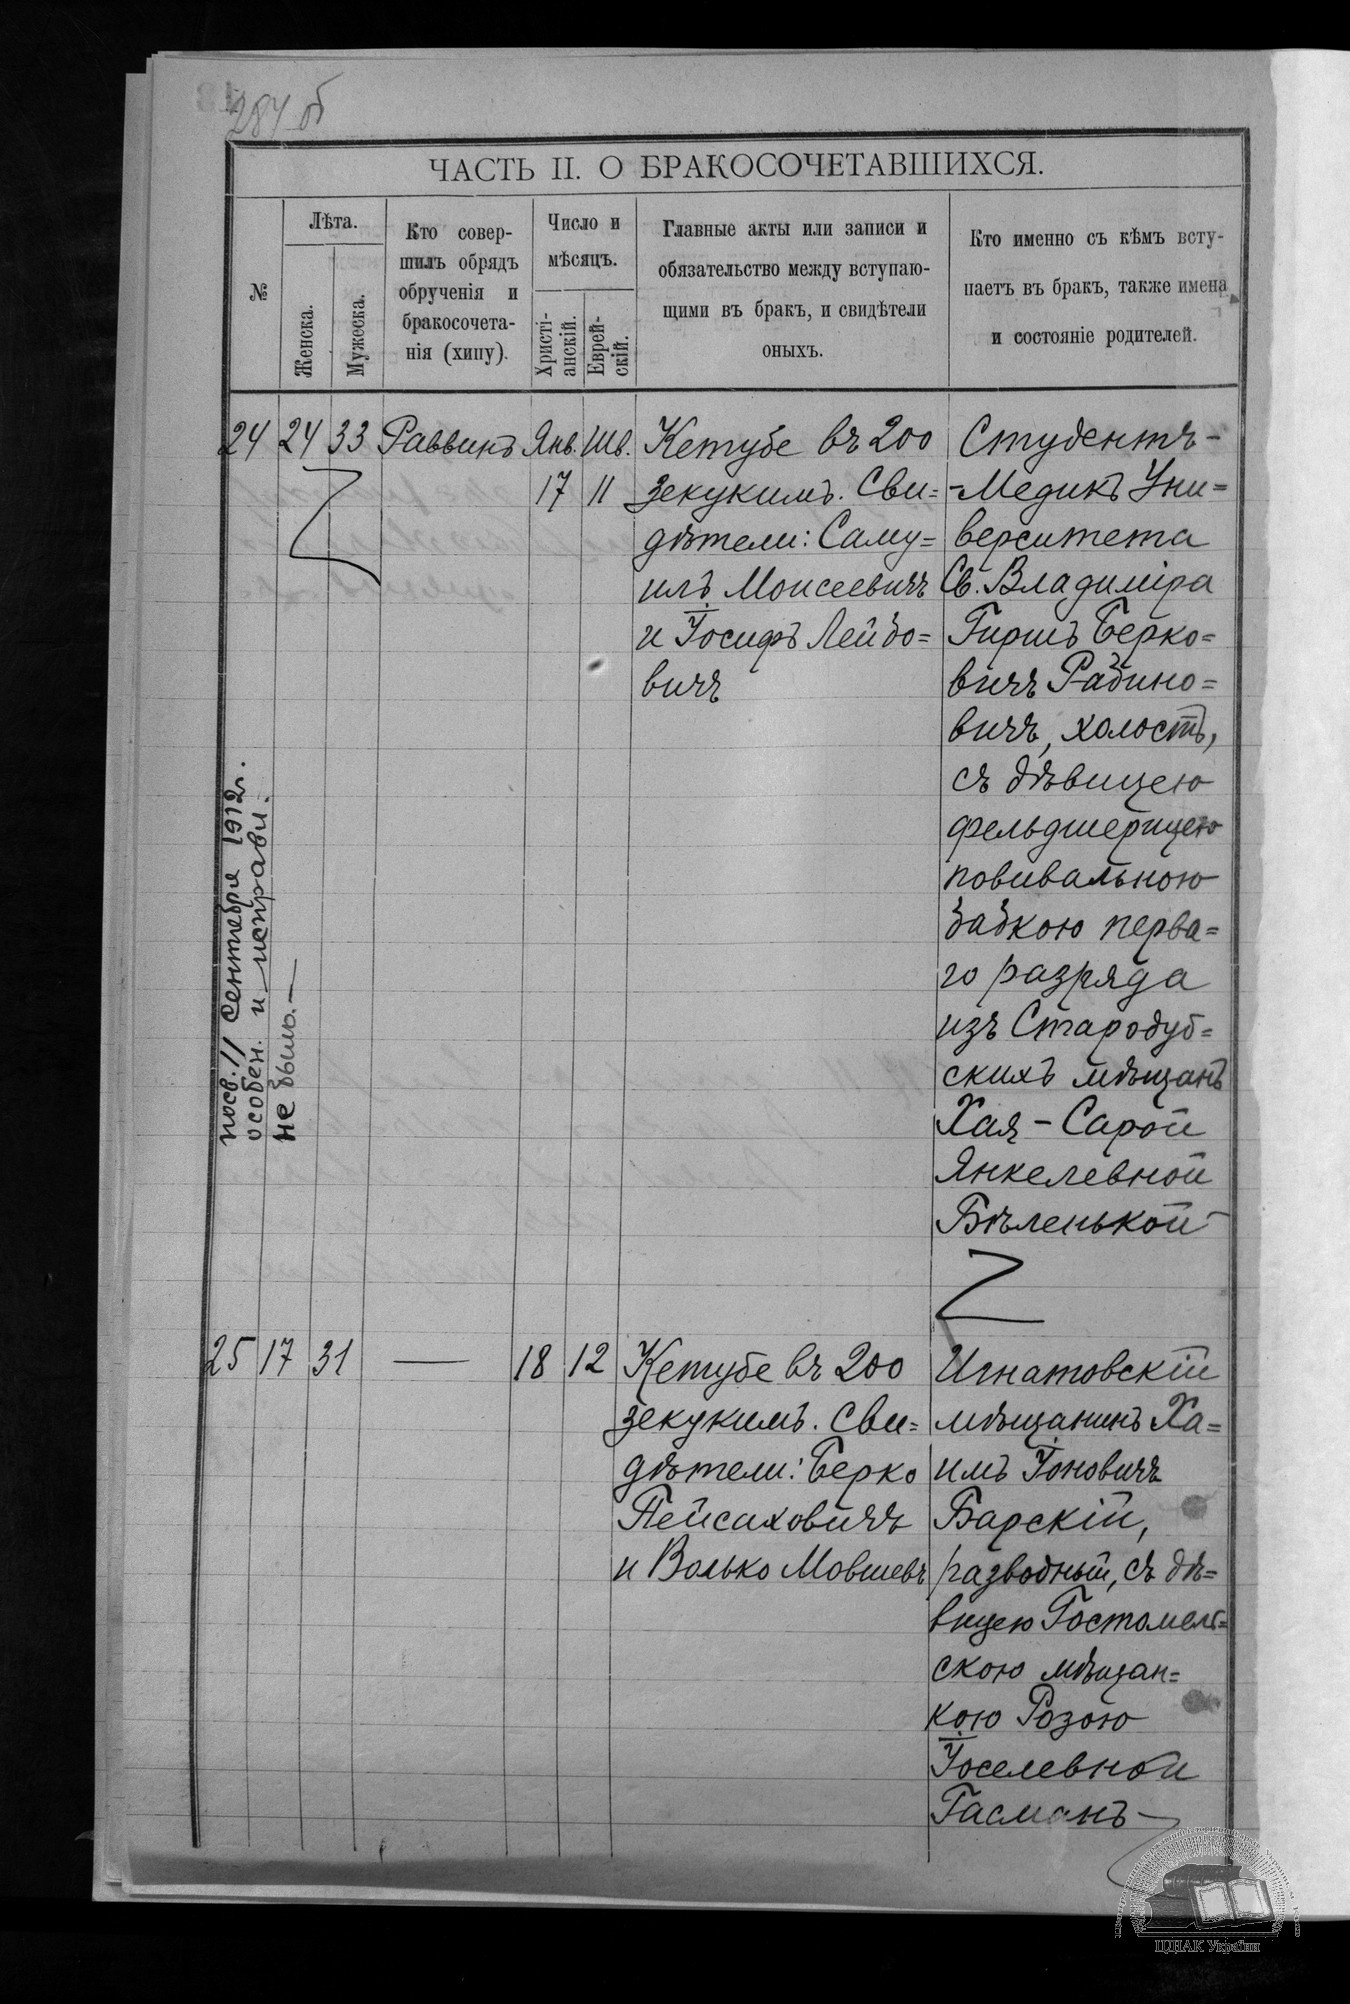 284 об
ЧАСТЬ II. О БРАКОСОЧЕТАВШИХСЯ.
№
Лѣта.
Женска.
Мужеска.
Кто совер-
шилъ обрядъ
обрученія и
бракосочета-
нія (хипу).
Число и
мѣсяцъ.
Христі-
анскій.
Еврей-
скій.
Главные акты или записи и
обязательство между вступаю-
щими въ бракъ, и свидѣтели
оныхъ.
Кто именно съ кѣмъ всту-
паетъ въ бракъ, также имена
и состояніе родителей.
24 24 33 Раввинъ Янв. Шв.
17 11
Кетубе въ 200
зекукимъ. Сви=
дѣтели: Саму=
илъ Моисеевичъ
и Іосифъ Лейбо=
вичъ
Студентъ-
-Медикъ Уни=
верситета
Св. Владиміра
Гиршъ Берко=
вичъ Рабино=
вичъ, холостъ,
съ дѣвицею
фельдшерицею
повивальною
бабкою перва=
го разряда
изъ Стародуб=
скихъ мѣщанъ
Хая-Сарой
Янкелевной
Бѣленькой
посв. 11 Сентября 1912 г.
особен. и исправл.
не было.—
25 17 31 — 18 12
Кетубе въ 200
зекукимъ. Сви=
дѣтели: Берко
Пейсаховичъ
и Волько Мовшевъ
Игнатовскій
мѣщанинъ Ха=
имъ Іоновичъ
Барскій,
разводный, съ дѣ=
вицею Гостомель=
скою мѣщан=
кою Розою
Іоселевной
Гасманъ
ЦДІАК України